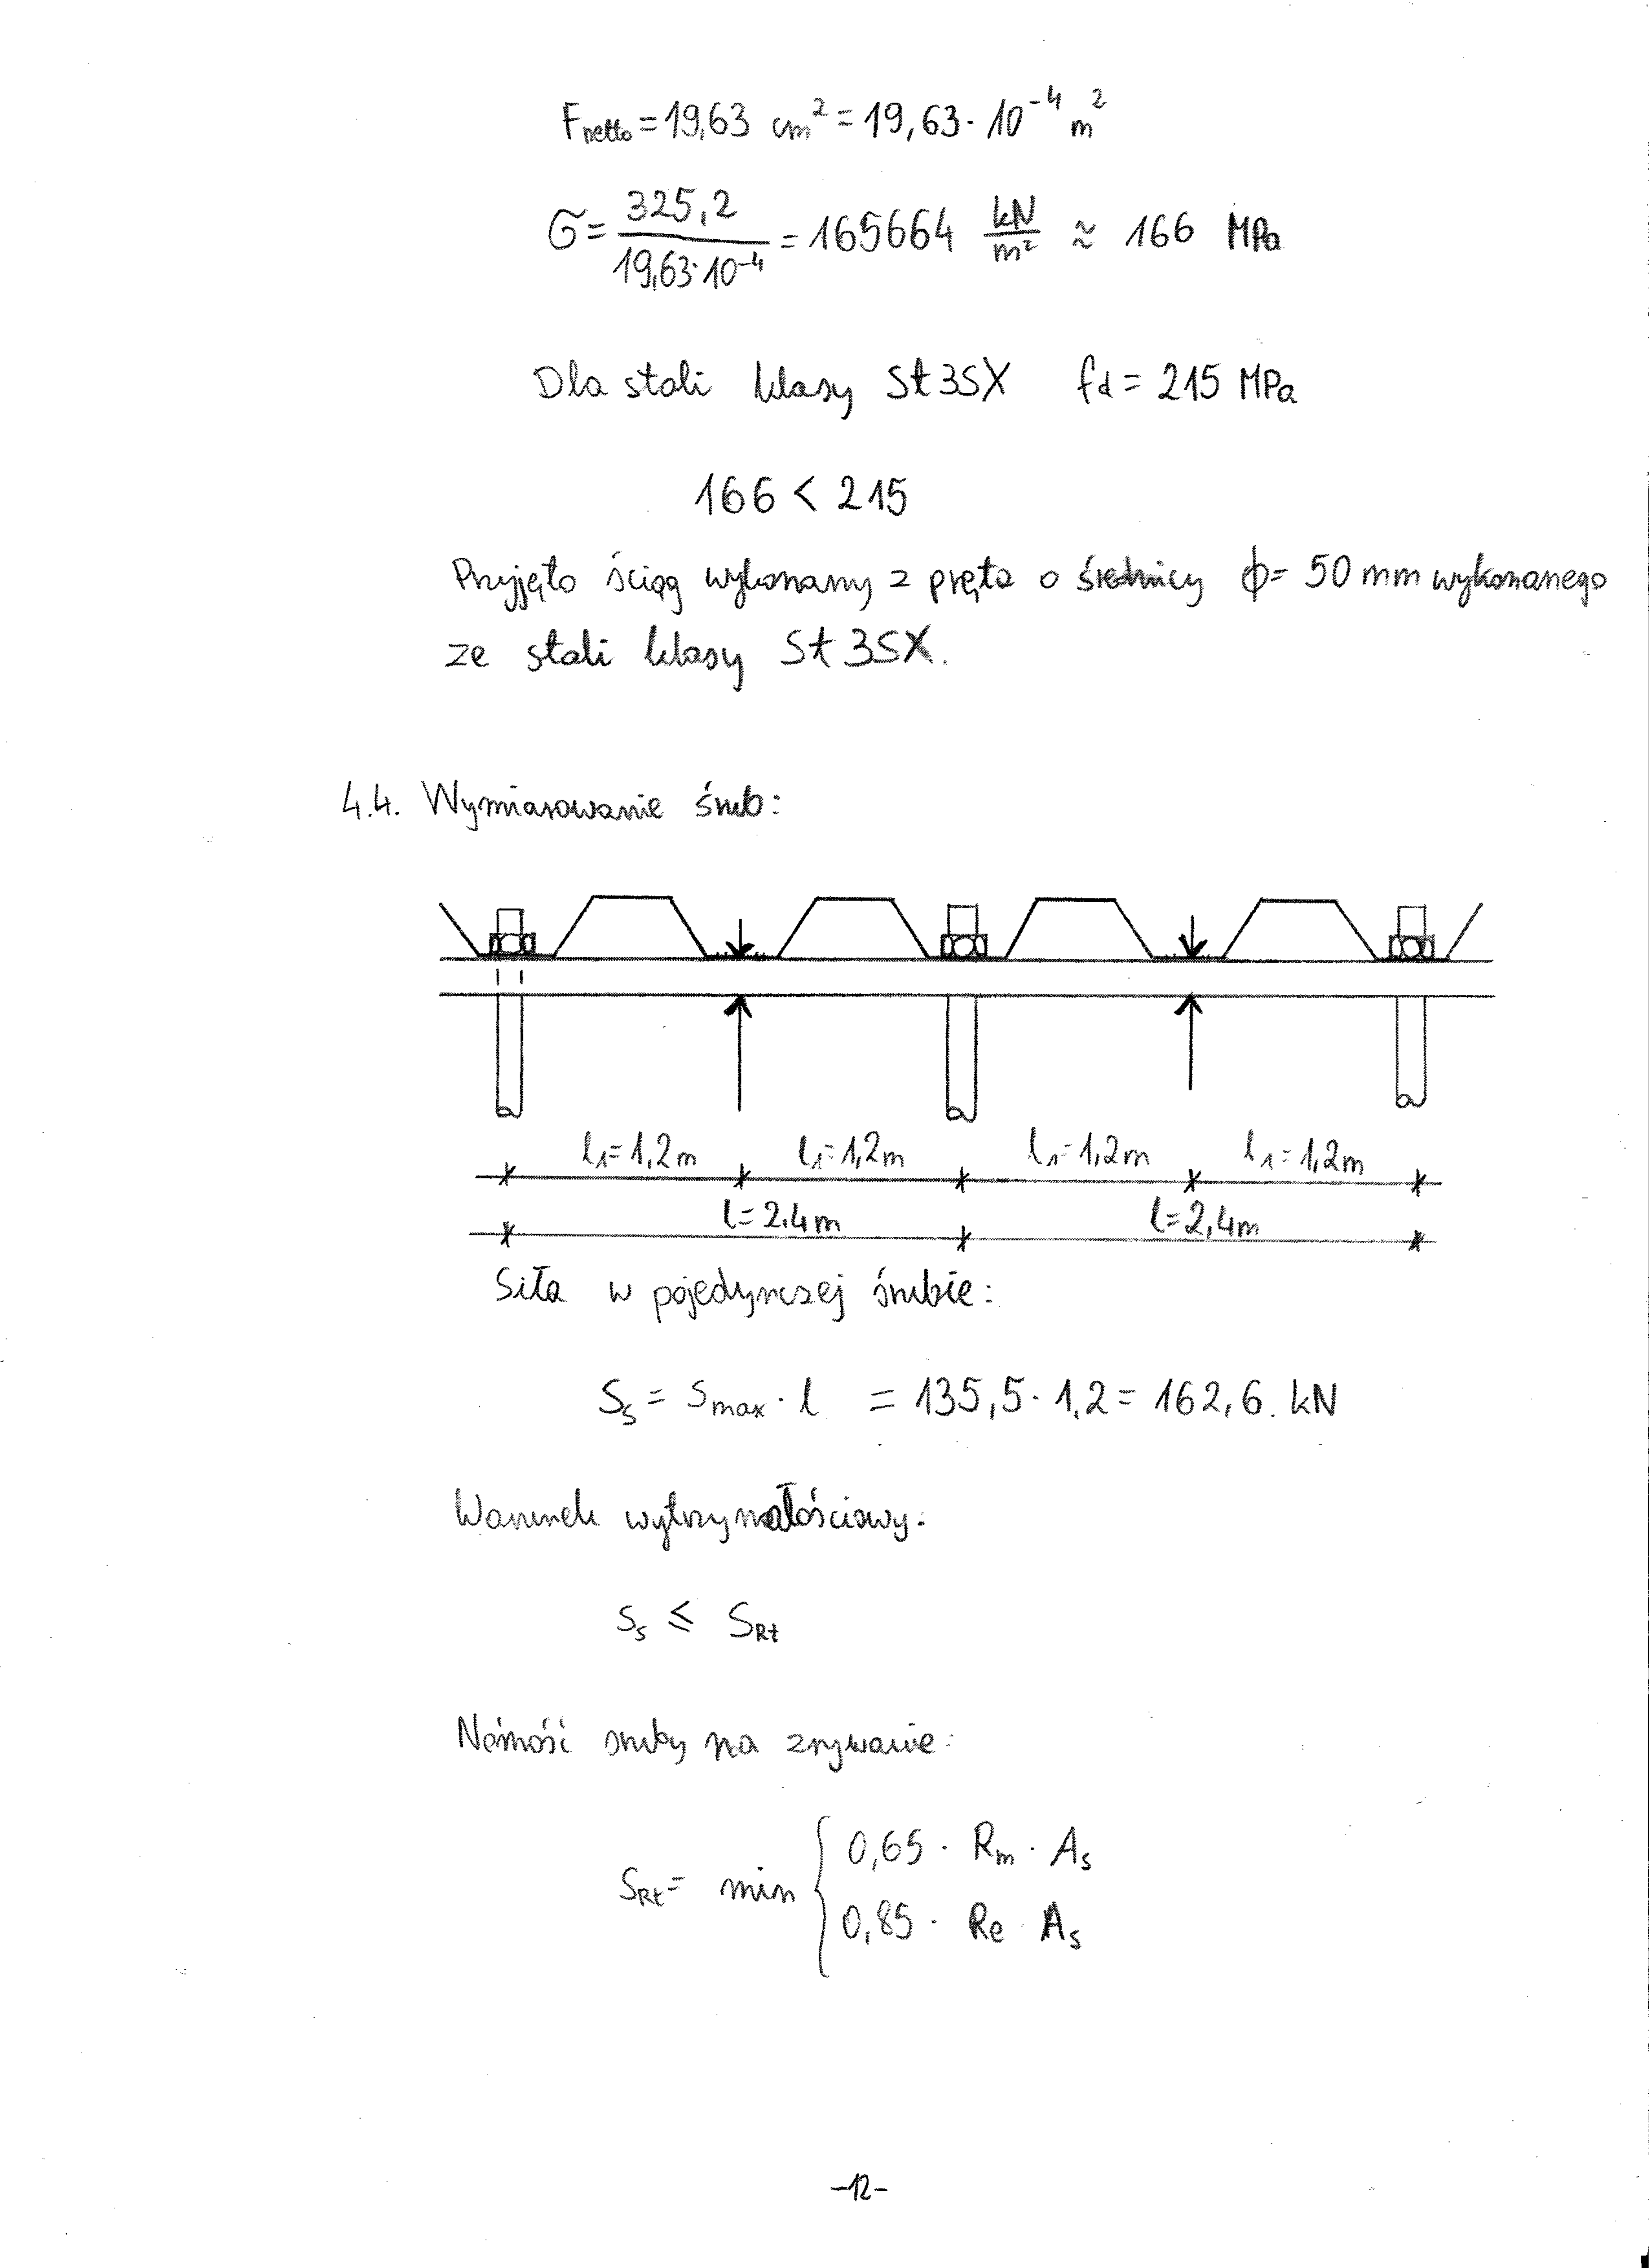 F netto = 19,63 cm² = 19,63 · 10⁻⁴ m²
σ = 325,2 / 19,63·10⁻⁴ = 165664 kN/m² ≈ 166 MPa
Dla stali klasy St3SX fd = 215 MPa
166 < 215
Przyjęto ściąg wykonany z pręta o średnicy ϕ = 50 mm wykonanego
ze stali klasy St3SX.
4.4. Wymiarowanie śrub:
l₁=1,2m l₁=1,2m l₁=1,2m l₁=1,2m
l=2,4m l=2,4m
Siła w pojedynczej śrubie:
Ss = Smax · l = 135,5 · 1,2 = 162,6. kN
Warunek wytrzymałościowy:
Ss ≤ SRt
Nośność śruby na zrywanie:
SRt = min { 0,65 · Rm · As
0,85 · Re · As
-12-